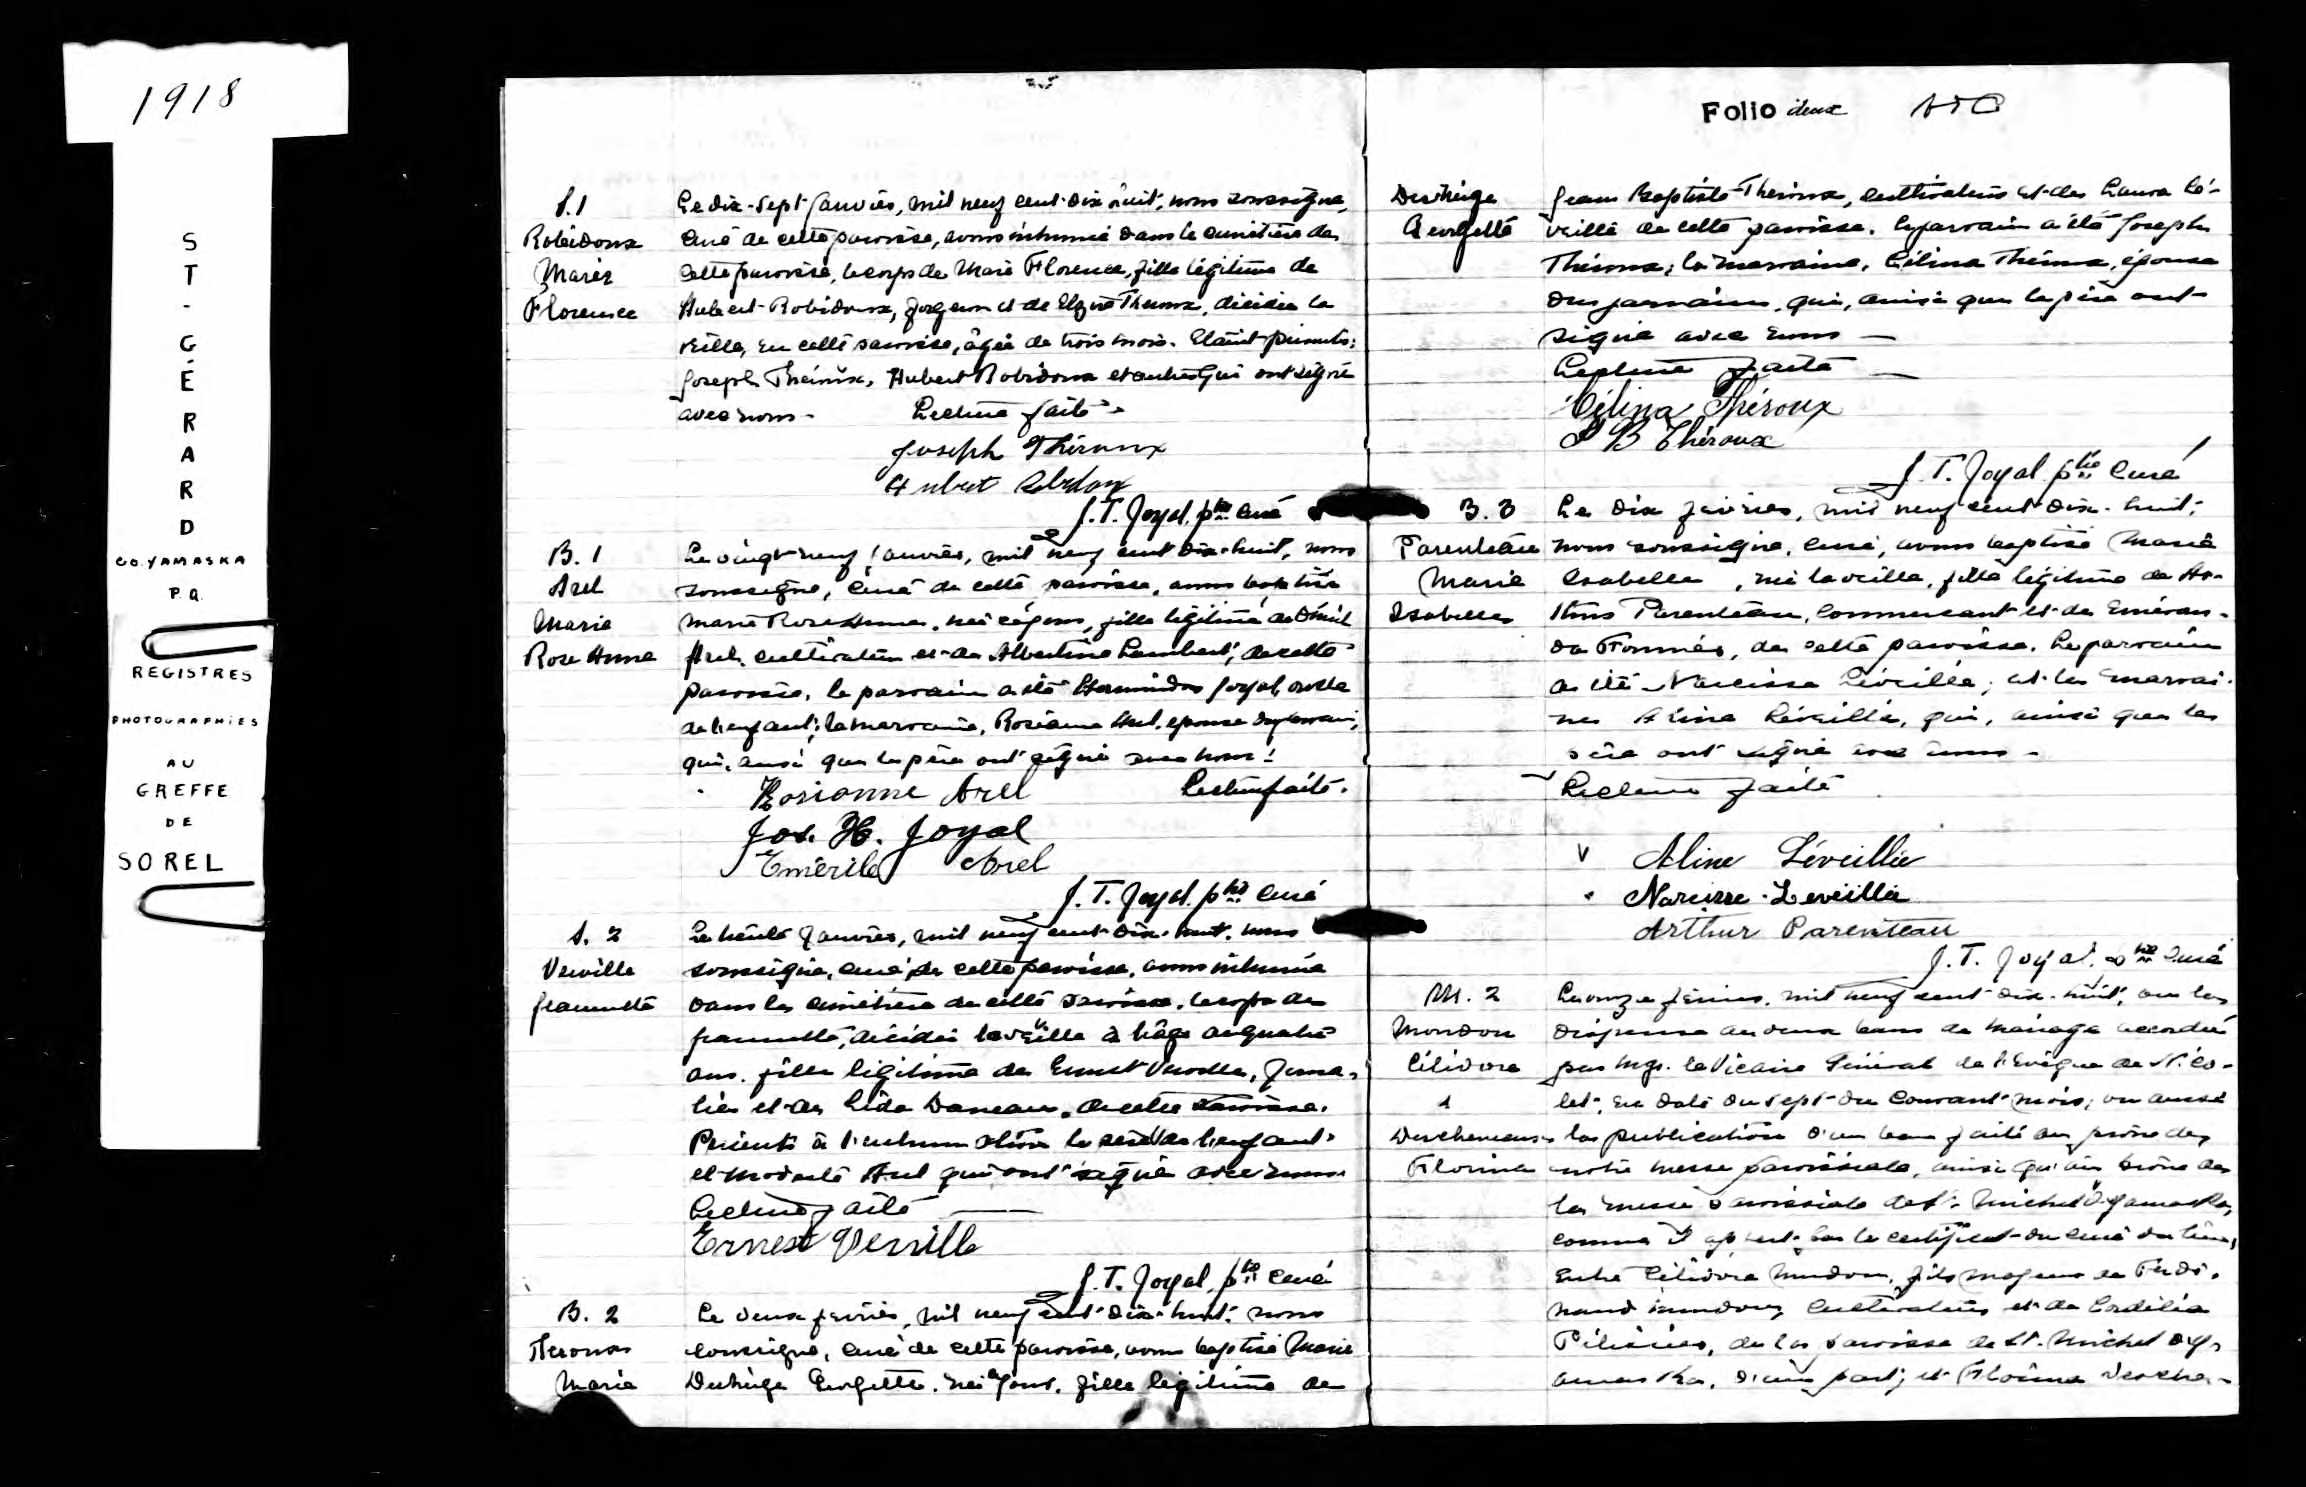 1918
S
T
-
G
É
R
A
R
D
CO. YAMASKA
P.Q.
REGISTRES
PHOTOGRAPHIÉS
AU
GREFFE
DE
SOREL
S.1
Robidoux
Marie
Florence
Le dix-sept janvier, mil neuf cent dix huit, nous soussigné,
curé de cette paroisse, avons inhumé dans le cimetière de
cette paroisse, le corps de Marie Florence, fille légitime de
Hubert Robidoux, forgeron et de Théroux, décédée la
veille, en cette paroisse, âgée de trois mois. Étaient présents:
Joseph Théroux, Hubert Robidoux et autres qui ont signé
avec nous. Lecture faite.
Joseph Théroux
Hubert
J.T. Joyal, ptre curé
B. 1
Arel
Marie
Rose Anna
Le vingt-neuf janvier, mil neuf cent dix-huit, nous
soussigné, curé de cette paroisse, avons baptisé
Marie Rose Anna, née ce jour, fille légitime de
Arel, cultivateur et de Albertine Lambert, de cette
paroisse, le parrain a été Joyal, oncle
de l'enfant; la marraine, Rosianne Arel, épouse du parrain,
qui, ainsi que le père ont signé avec nous.
Lecture faite.
Rosianne Arel
Jos. H. Joyal
Emérile Arel
J.T. Joyal, ptre curé
S. 2
Verville
Jeannette
Le trente janvier, mil neuf cent dix-huit, nous
soussigné, curé de cette paroisse, avons inhumé
dans le cimetière de cette paroisse, le corps de
Jeannette, décédée la veille à l'âge de quatre
ans, fille légitime de Ernest Verville, journa-
lier et de Lida Daneau, de cette paroisse.
Présents à l'inhumation le père de l'enfant
et Modeste Arel qui ont signé avec nous.
Lecture faite
Ernest Verville
J.T. Joyal, ptre curé
B. 2
Theroux
Marie
Le deux février, mil neuf cent dix-huit, nous
soussigné, curé de cette paroisse, avons baptisé Marie
Georgette, née ce jour, fille légitime de
Folio deux
Georgette
Jean Baptiste Théroux, cultivateur et de Laura Lé-
veillé de cette paroisse. Le parrain a été Joseph
Théroux; la marraine, Célina Théroux, épouse
du parrain, qui, ainsi que le père ont
signé avec nous
Lecture faite
Célina Théroux
J B Théroux
J.T. Joyal, ptre curé
B. 3
Parenteau
Marie
Isabelle
Le dix février, mil neuf cent dix-huit,
nous soussigné, curé, avons baptisé Marie
Isabelle, née la veille, fille légitime de Ar-
thur Parenteau, commerçant et de
de cette paroisse. Le parrain
a été Narcisse Léveillé; et la marrai-
ne Aline Léveillé, qui, ainsi que le
père ont signé avec nous.
Lecture faite
Aline Léveillée
Narcisse Leveillée
Arthur Parenteau
J.T. Joyal, ptre curé
M. 2
Mondou
Célidore
&
Florina
Le onze février, mil neuf cent dix-huit, vu la
dispense de deux bans de mariage accordée
par Mgr. le Vicaire Général de l'Evêque de Nico-
let, en date du sept du courant mois; vu aussi
la publication d'un ban faite au prône de
notre messe paroissiale, ainsi qu'au prône de
la messe paroissiale de St. Michel d'Yamaska,
comme il appert par le certificat du curé du lieu,
entre Célidore Mondou, fils majeur de Ferdi-
nand Mondou, cultivateur et de Cordélia
de la paroisse de St. Michel d'Y-
amaska, d'une part; et Florina